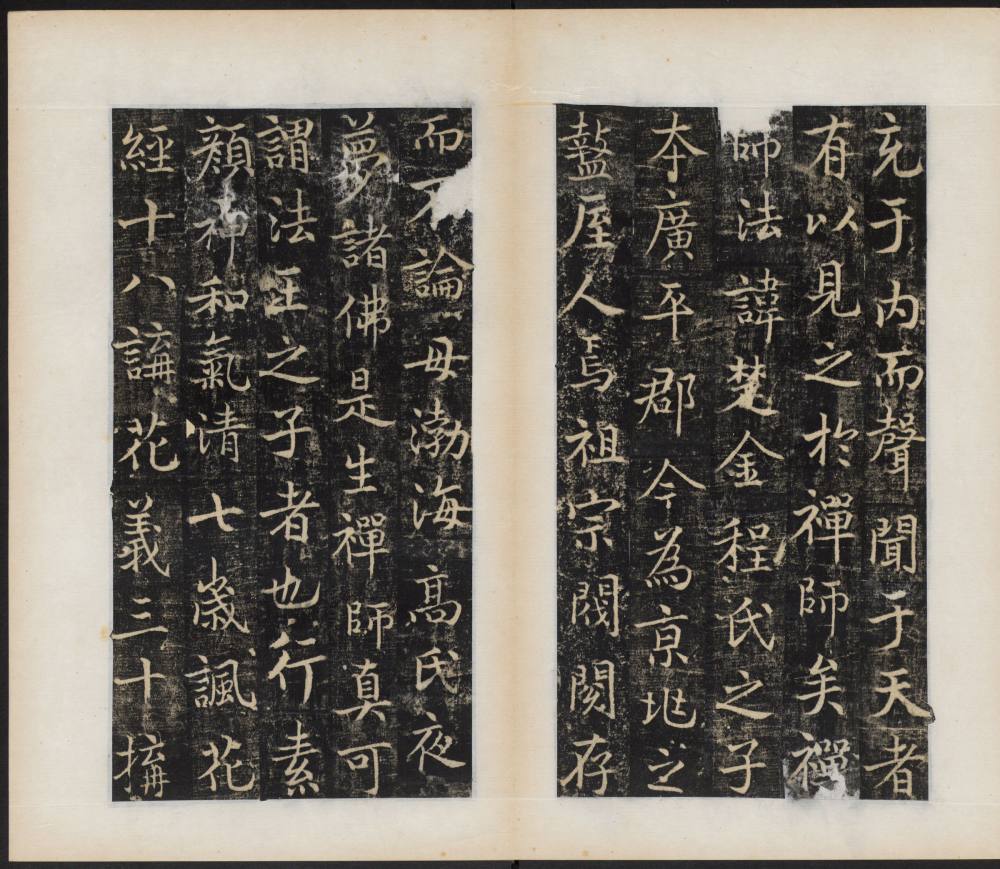 充于内而聲聞于天者
有以見之於禪師矣禪
師法諱楚金程氏之子
本廣平郡今為京兆之
盩厔人焉祖宗閥閱存
而不論母渤海高氏夜
夢諸佛是生禪師真可
謂法王之子者也行素
顏神和氣清七歲諷花
經十八講花義三十搆